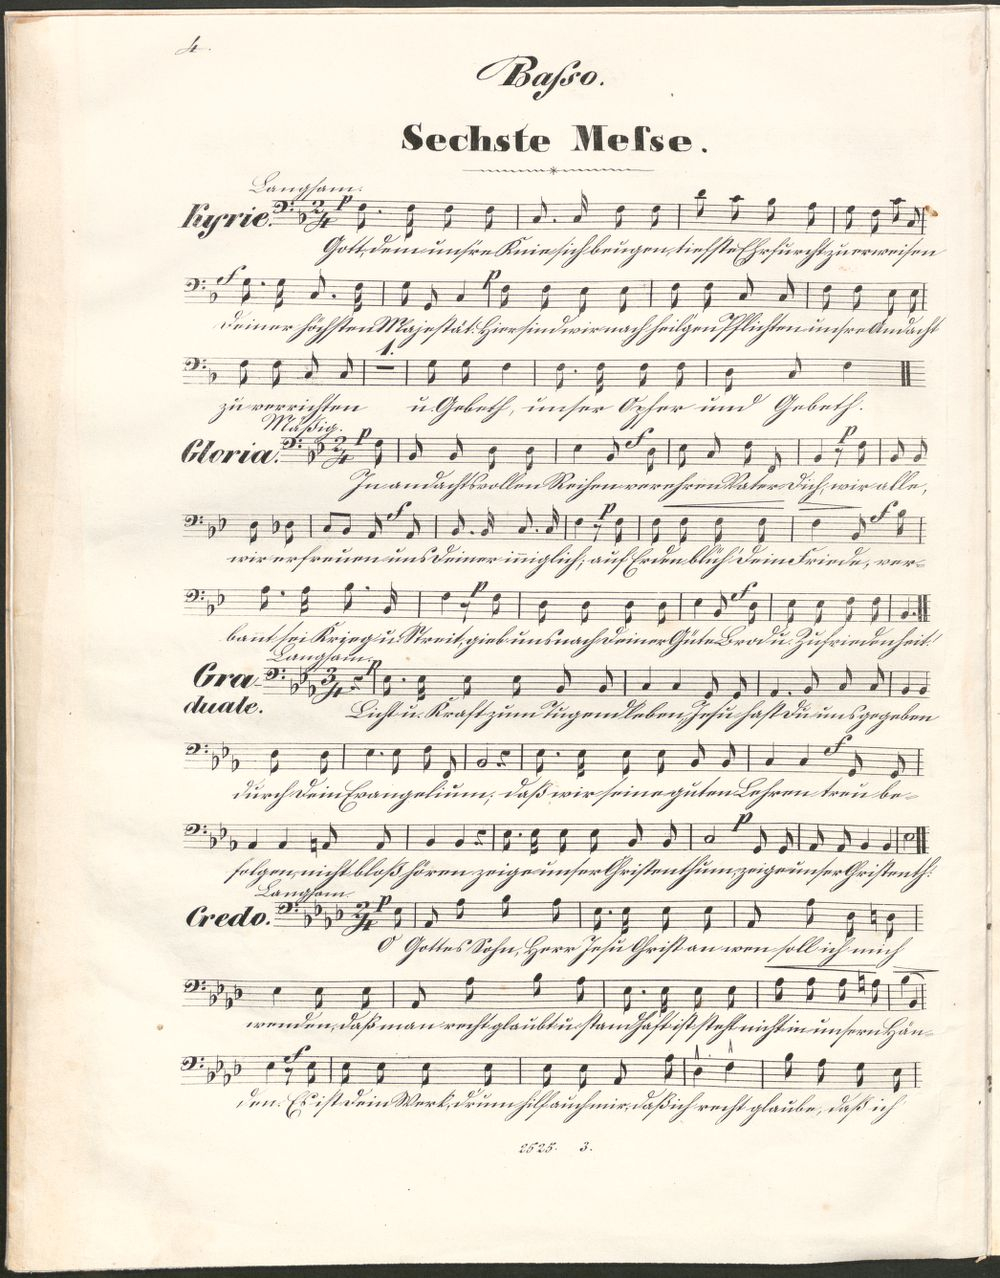 4.
Baſso.
Sechste Meſse.
Langsam.
Kyrie. p
Gott, dem unsre Knie sich beugen, tiefste Ehrfurcht zu erweisen
f p
deiner höchsten Majestät: Hier sind wir nach heilgen Pflichten unsre Andacht
1.
zu verrichten u. Gebeth, unser Opfer und Gebeth.
Mäßig.
Gloria. p f p
In andachtsvollen Reihen verehren Vater dich, wir alle,
f p f
wir erfreuen uns deiner inniglich; auf Erden blüh dein Friede, ver-
p f
bant sei Krieg u. Streit, gieb uns nach deiner Güte Brod u. Zufriedenheit!
Langsam.
Gra- p
duale.
Licht u. Kraft zum Tugendleben, Jesu hast du uns gegeben
f
durch dein Evangelium; daß wir seine guten Lehren treu be-
p
folgen, nicht bloß hören zeige unser Christenthum, zeige unser Christenth:
Langsam
Credo. p
O Gottes Sohn, Herr Jesu Christ an wen soll ich mich
wenden, daß man recht glaubt u. standhaft ist steht nicht in unsern Hän-
f
den. Es ist dein Werk, drum hilf auch mir, daß ich recht glaube, daß ich
2525. 3.